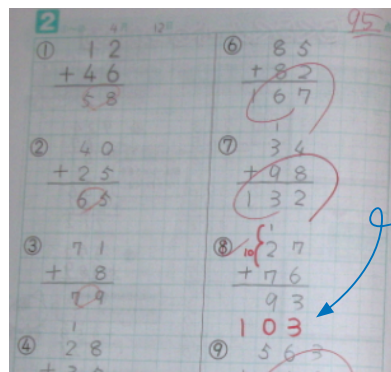 2 4月 12日 95
① 12
+46
58
② 40
+25
65
③ 71
+ 8
79
④ 1
28
⑥ 85
+82
167
⑦ 1
34
+98
132
⑧ 1
10{ 27
+76
93
103
⑨ 563